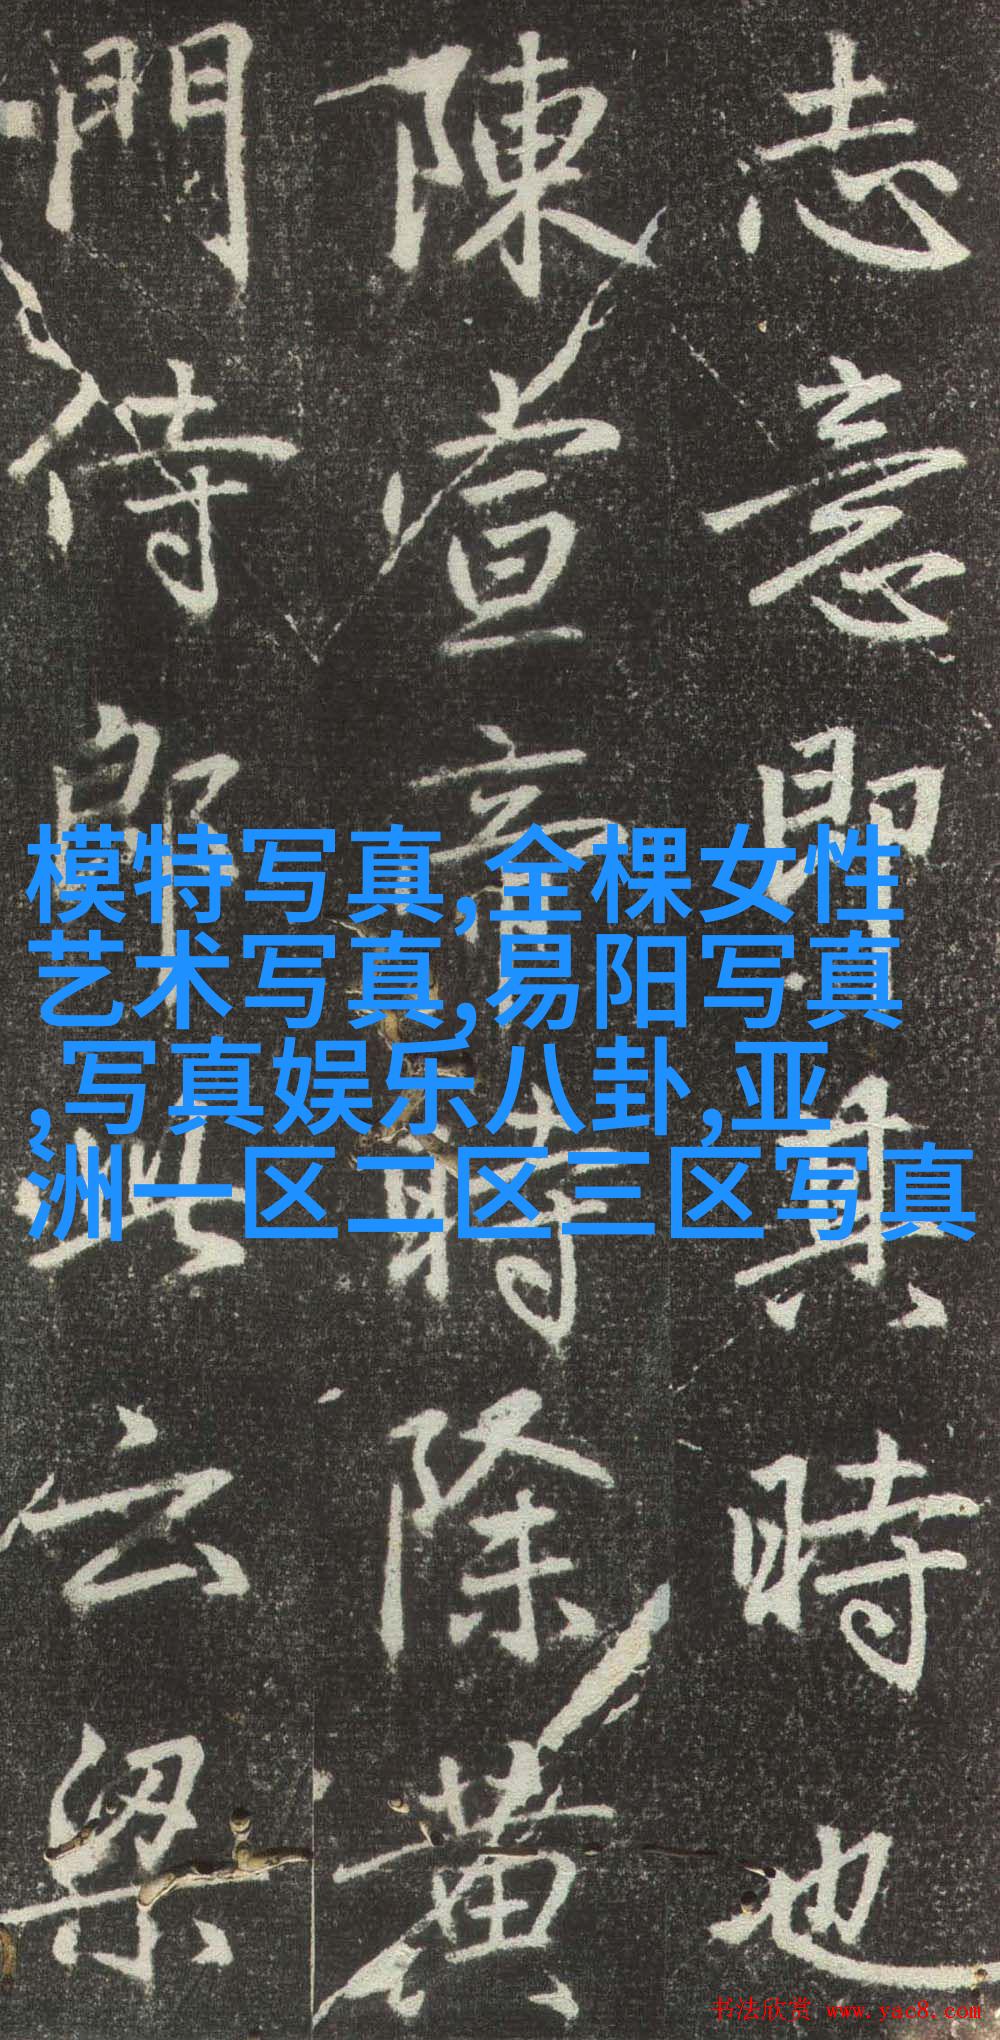 志意即真時也
陳宣帝時除黄
門侍郎此云梁
模特写真,全棵女性
艺术写真,易阳写真
,写真娱乐八卦,亚
洲一区二区三区写真
书法欣赏 www.yac8.com